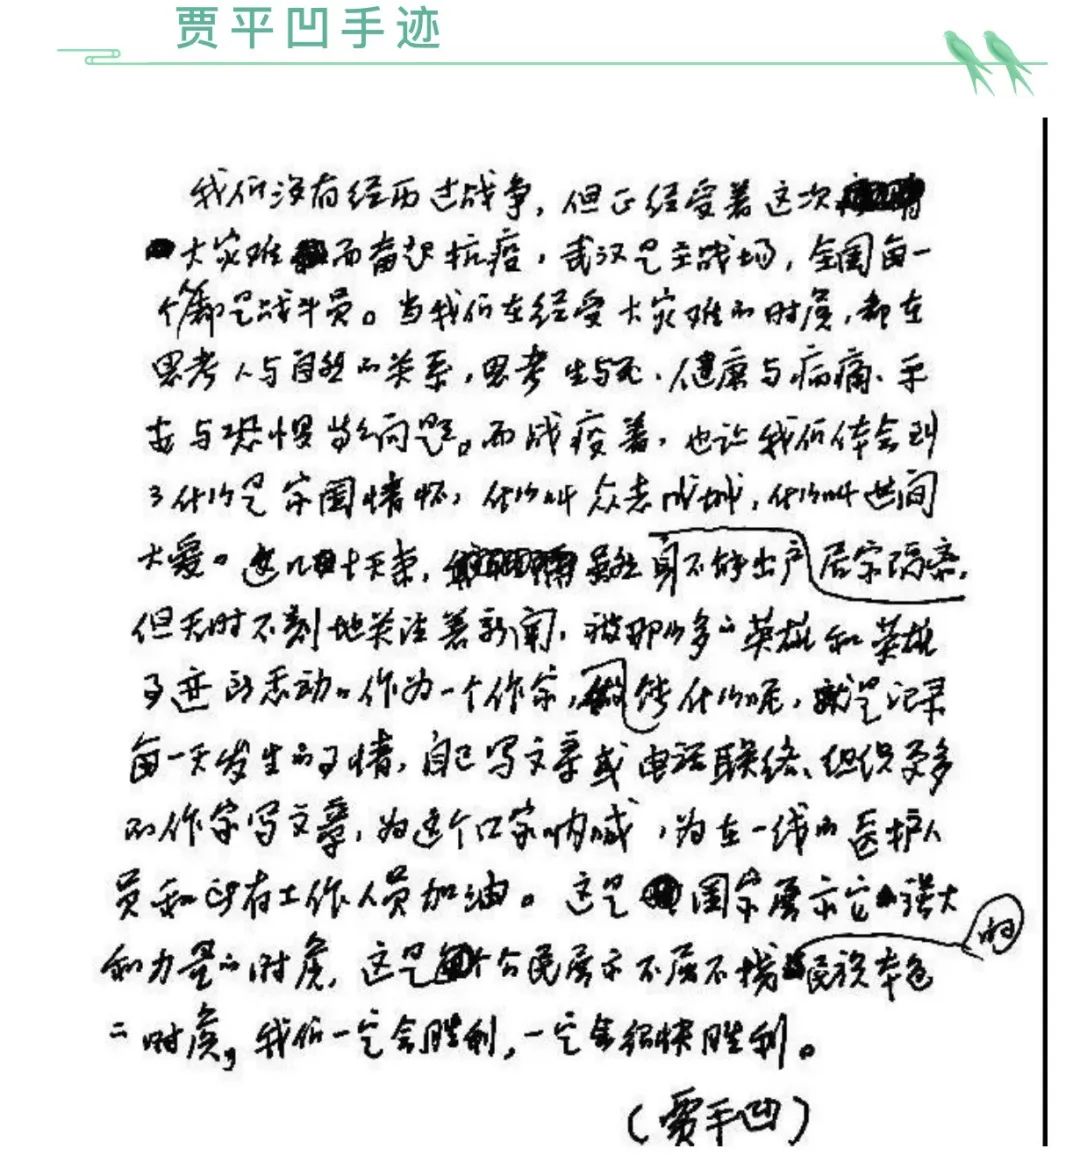 贾平凹手迹
我们没有经历过战争，但正经受着这次
大灾难而奋起抗疫，武汉是主战场，全国每一
个都是战斗员。当我们在经受大灾难的时候，都在
思考人与自然的关系，思考生与死、健康与病痛、平
安与恐惧等问题。而战疫着，也让我们体会到
了什么是家国情怀，什么叫众志成城，什么叫世间
大爱。这几十天来，虽然身不能出户居家隔离，
但无时不刻地关注着新闻，被那么多的英雄和英雄
事迹所感动。作为一个作家，能做什么呢，就是记录
每一天发生的事情，自己写文章或电话联络、组织更多
的作家写文章，为这个国家呐喊，为在一线的医护人
员和所有工作人员加油。这是国家展示它强大
和力量的时候，这是每个公民展示不屈不挠的民族本色
的时候，我们一定会胜利，一定会很快胜利。
（贾平凹）